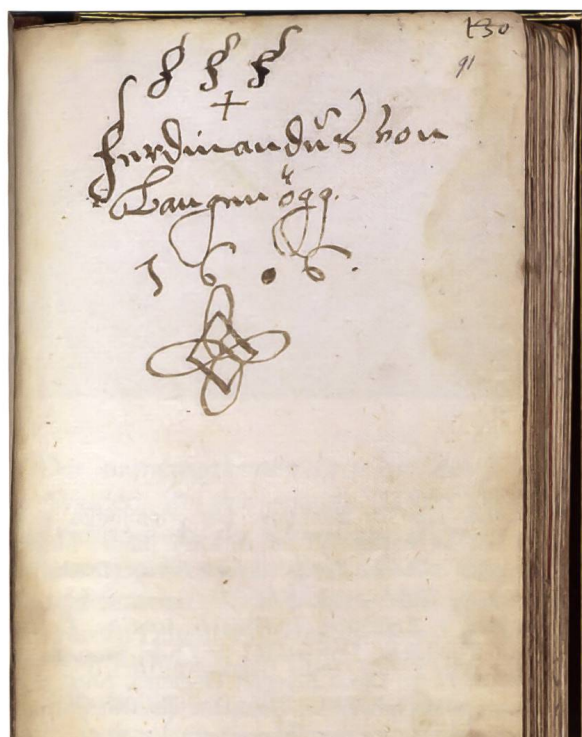 130
91
Ferdinandus von
Langenögg.
1 6 • 6 .